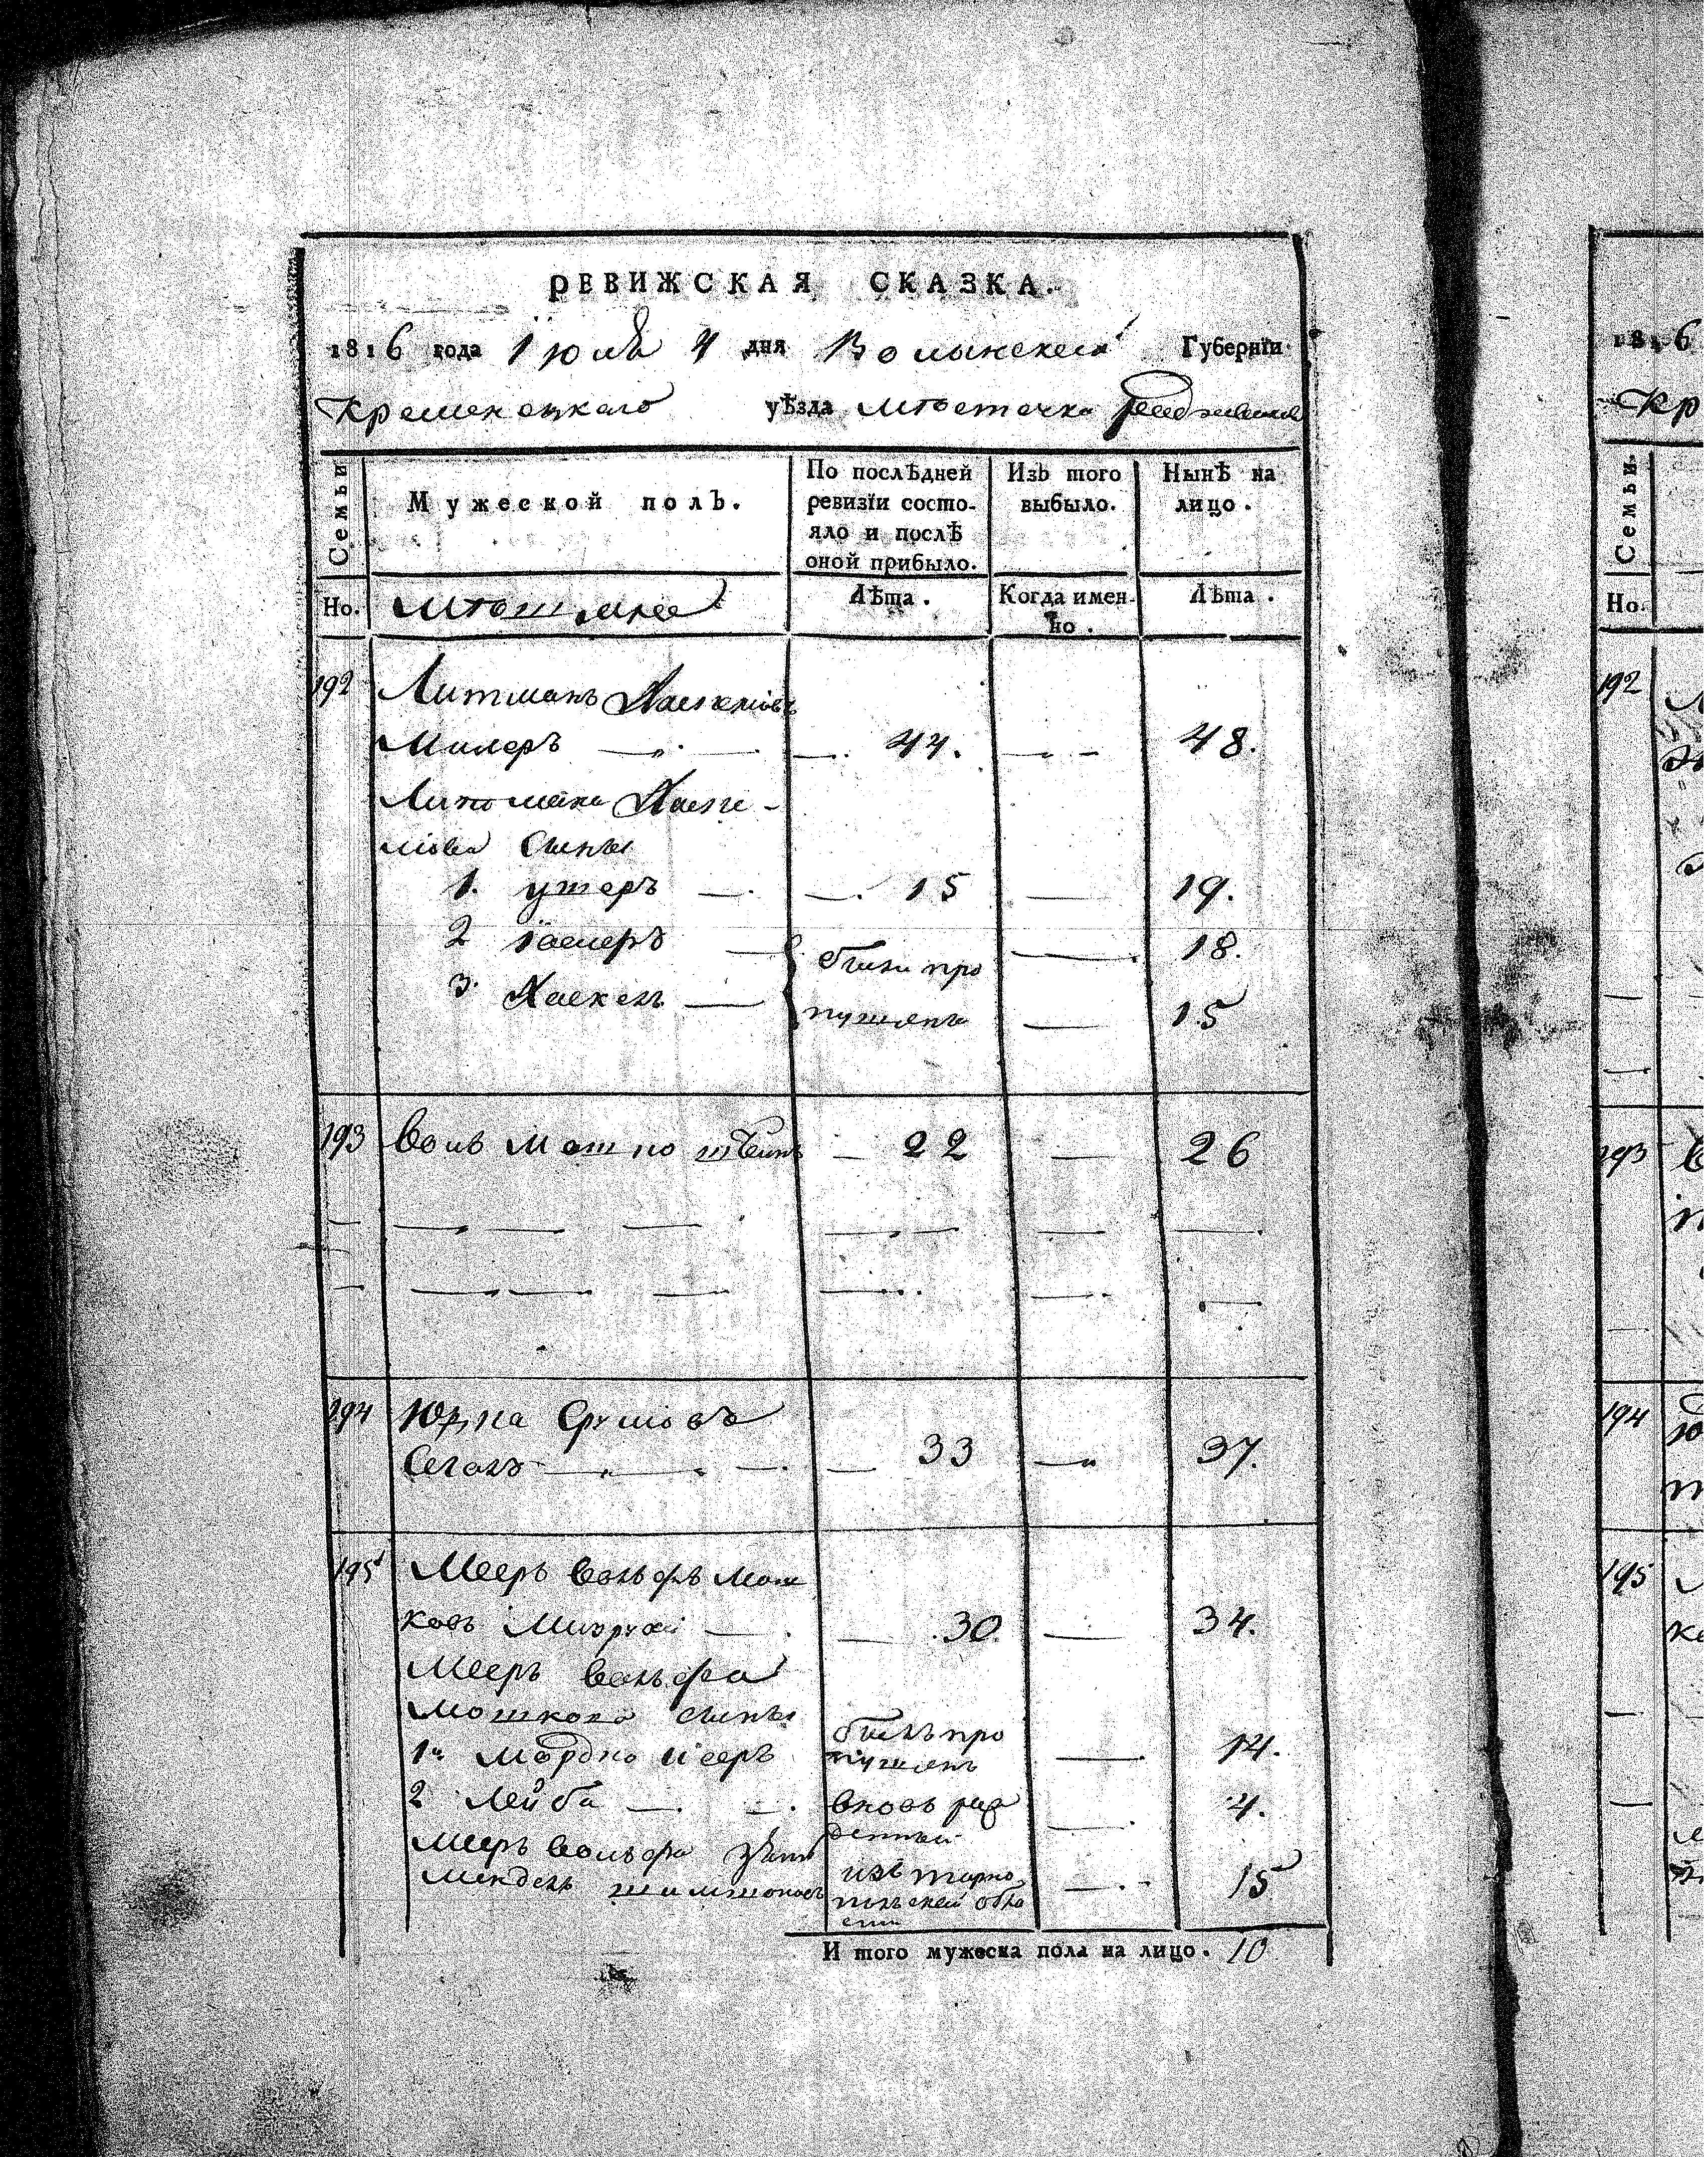 РЕВИЖСКАЯ СКАЗКА.
1816 года Iюля 4 дня Волынской Губернїи
Кременецкаго уѣзда мѣстечка
Семьи
Мужеской полъ.
По послѣдней ревизїи состо-
яло и послѣ
оной прибыло.
Изъ того
выбыло.
Нынѣ на
лицо.
Но.
Лѣта.
Когда имен-
но.
Лѣта.
192 Литманъ Хаскелiовъ
Милеръ 44. 48.
Литмана Хаске-
лiова сыны
1. ушеръ 15 19.
2 были про 18.
3. Хаскель пущены 15
193 Воль Мошко 22 26
194 Юдка Срулiовъ
Сегалъ 33 37.
195 Мееръ Вольфъ Мош
ковъ 30. 34.
Мееръ Вольфа
Мошкова сыны
1й Мордко былъ про
пущенъ 14.
2 Лейба вновь рож
денный 4.
Мееръ Вольфа зять
Мендель Шимшоновъ изъ тарно
польской обла
сти 15
И того мужеска пола на лицо. 10
1816
Кр
Семьи.
Но.
192
193
194
195